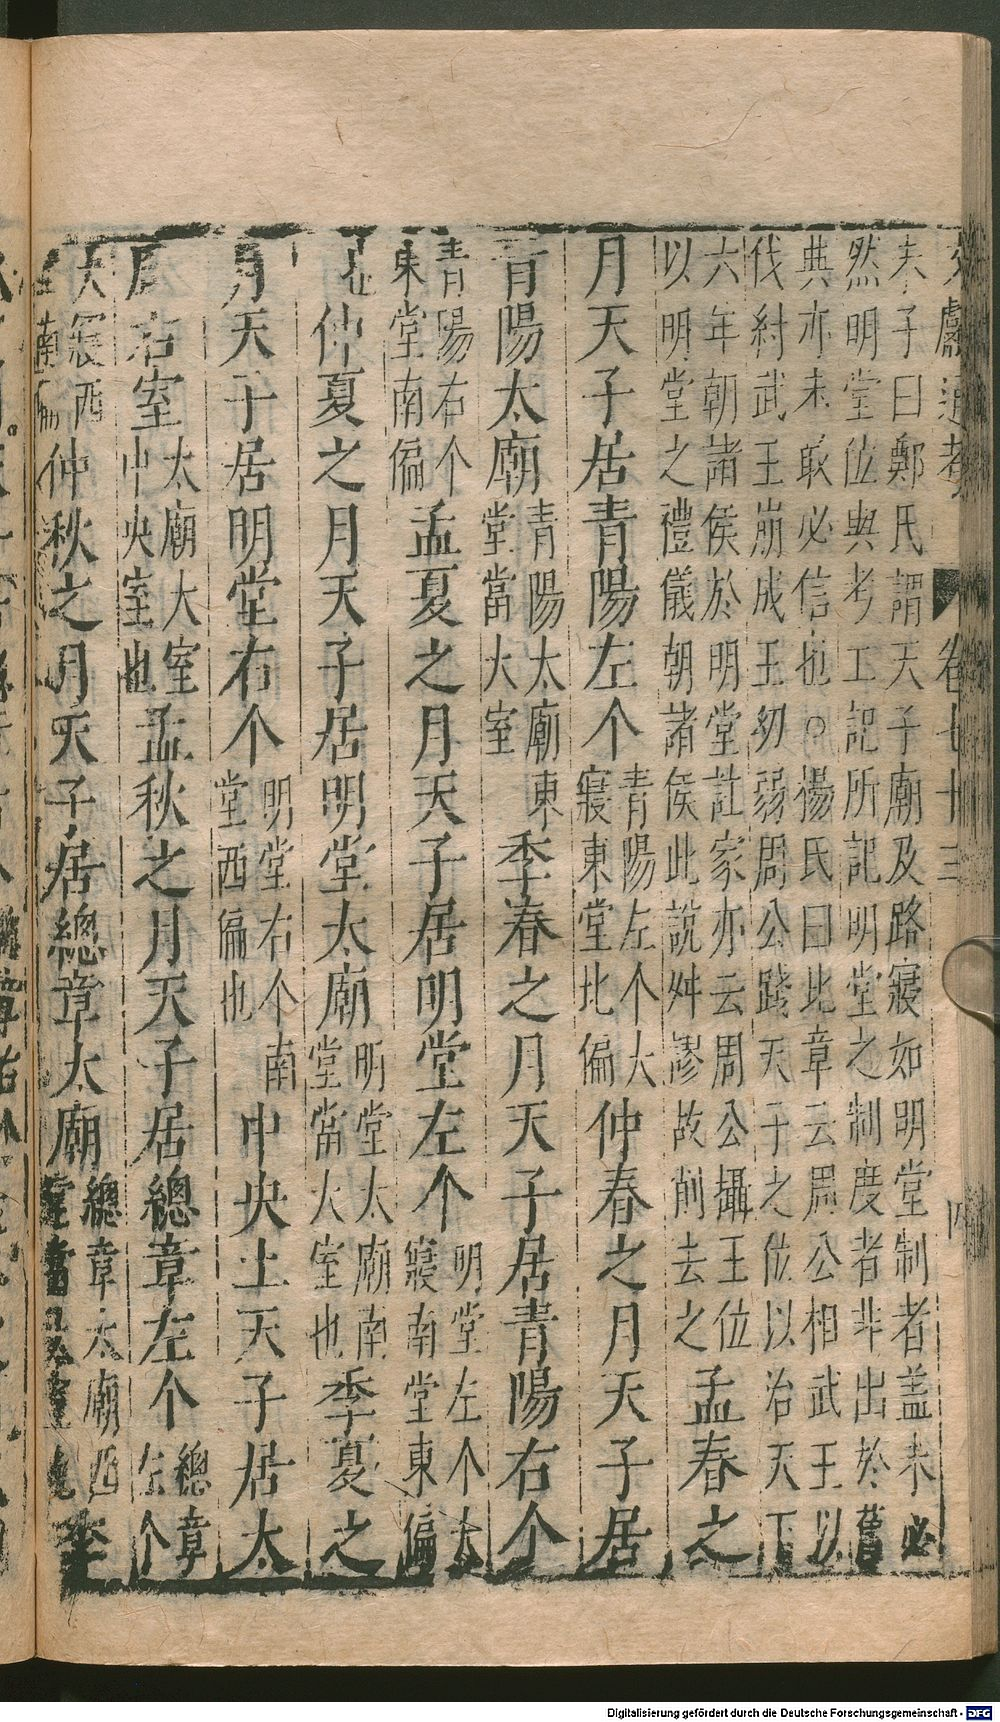 卷七十三 四
夫子曰鄭氏謂天子廟及路寢如明堂制者蓋未必
然明堂位與考工記所記明堂之制度者非出於舊
典亦未敢必信也○楊氏曰此章云周公相武王以
伐紂武王崩成王幼弱周公踐天子之位以治天下
六年朝諸侯於明堂註家亦云周公攝王位
以明堂之禮儀朝諸侯此說舛謬故削去之孟春之
月天子居青陽左个青陽左个大寢東堂北偏仲春之月天子居
青陽太廟青陽太廟東堂當大室季春之月天子居青陽右个
青陽右个東堂南偏孟夏之月天子居明堂左个明堂左个太寢南堂東偏
仲夏之月天子居明堂太廟明堂太廟南堂當大室也季夏之
月天子居明堂右个明堂右个南堂西偏也中央土天子居太
右室太廟大室中央室也孟秋之月天子居總章左个總章左个
大寢西南偏仲秋之月天子居總章太廟總章太廟西季
Digitalisierung gefördert durch die Deutsche Forschungsgemeinschaft - DFG